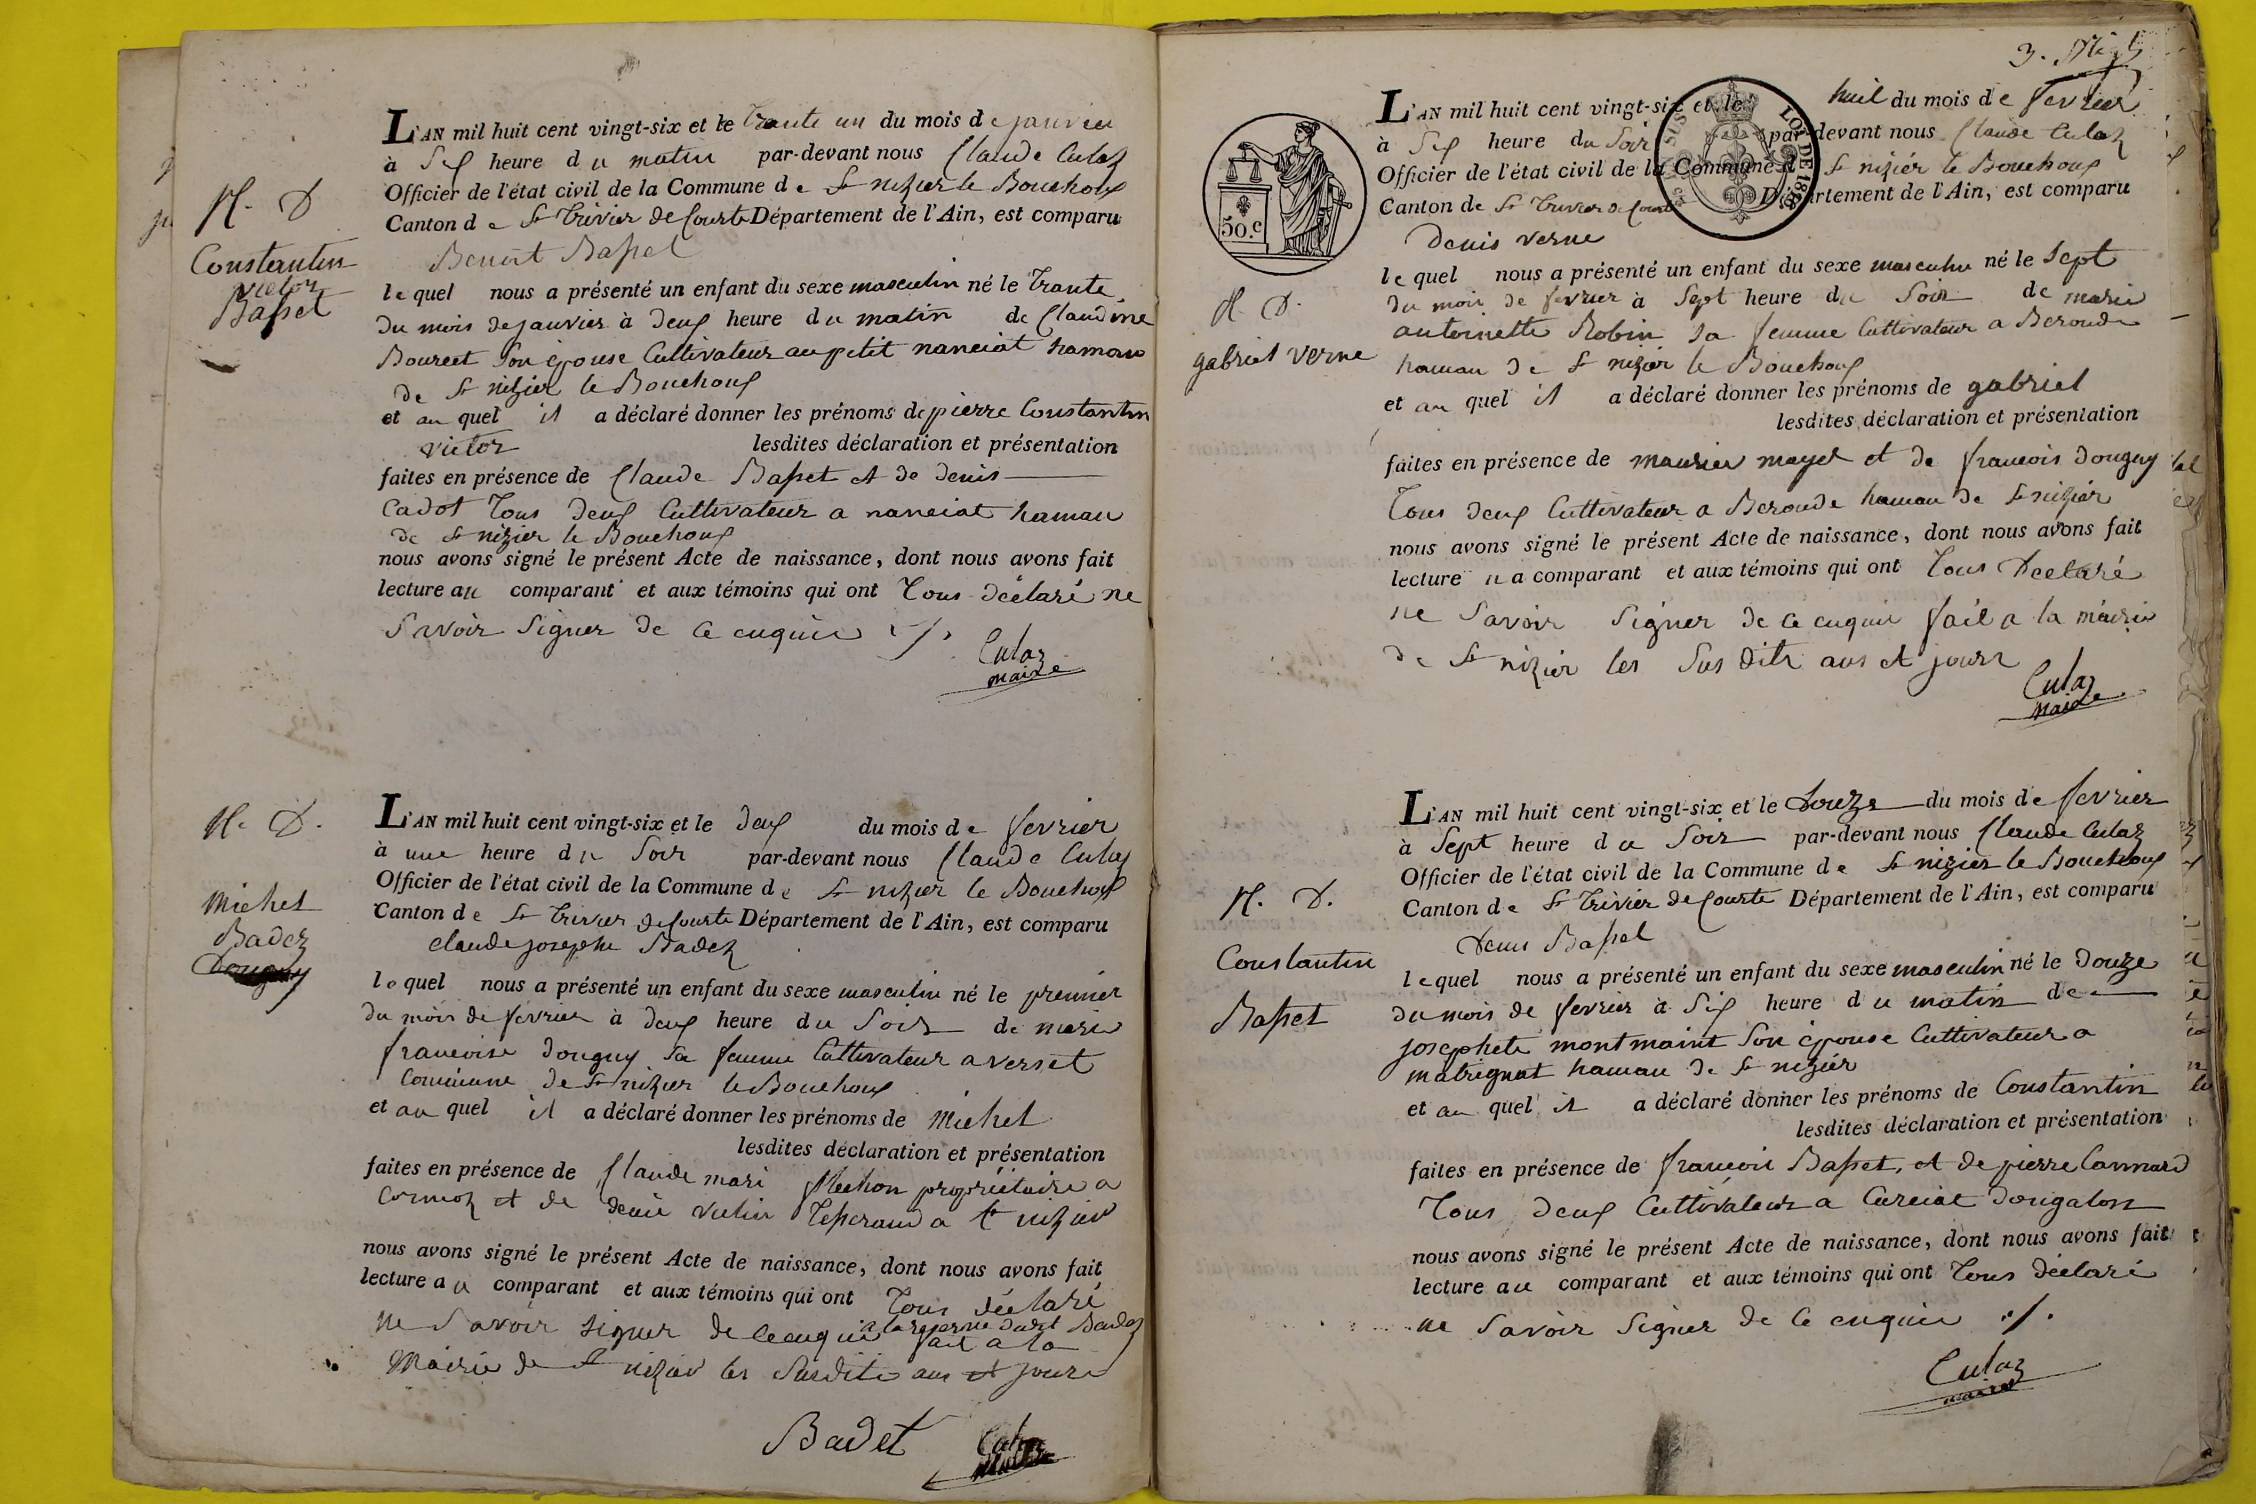 N. D.
Constantin
victor
Basset
L'AN mil huit cent vingt-six et le trante un du mois de janvier
à Six heure du matin par-devant nous Claude Culaz
Officier de l'état civil de la Commune de St nizier le Bouchoux
Canton de St trivier de Courte Département de l'Ain, est comparu
Benoit Basset
lequel nous a présenté un enfant du sexe masculin né le trante
du mois de janvier à deux heure du matin de Claudine
Son épouse Cultivateur au petit nanciat hamau
de St nizier le Bouchoux
et au quel il a déclaré donner les prénoms de pierre Constantin
victor lesdites déclaration et présentation
faites en présence de Claude Basset et de denis
Cadot tous deux Cultivateur a nanciat hamau
de St nizier le Bouchoux
nous avons signé le présent Acte de naissance, dont nous avons fait
lecture au comparant et aux témoins qui ont tous déclaré ne
Savoir Signer de ce enquie ./.
Culaz
maire
N. D.
Michel
Badez
Dougny
L'AN mil huit cent vingt-six et le deux du mois de fevrier
à une heure du Soir par-devant nous Claude Culaz
Officier de l'état civil de la Commune de St nizier le Bouchoux
Canton de St trivier de Courte Département de l'Ain, est comparu
claude josephe Badez
lequel nous a présenté un enfant du sexe masculin né le premier
du mois de fevrier à deux heure du Soir de marie
francoise dougny Sa femme Cultivateur a verset
Commune de St nizier le Bouchoux
et au quel il a déclaré donner les prénoms de Michel
lesdites déclaration et présentation
faites en présence de Claude mari propriétaire a
Cormoz et de denis a St nizier
nous avons signé le présent Acte de naissance, dont nous avons fait
lecture au comparant et aux témoins qui ont tous déclaré
ne Savoir signer de ce enquie a la reserve dudit Badez fait a la
Mairie de St nizier les Susdits ans et jours
Badet
Culaz
maire
3.
50.c
LOI DE 1816
N. D.
gabriel verne
L'AN mil huit cent vingt-six et le huit du mois de fevrier
à Six heure du Soir par-devant nous Claude Culaz
Officier de l'état civil de la Commune de St nizier le Bouchoux
Canton de St trivier de Courte Département de l'Ain, est comparu
Denis verne
lequel nous a présenté un enfant du sexe masculin né le Sept
du mois de fevrier à Sept heure du Soir de marie
antoinette Robin Sa femme Cultivateur a Beroude
hamau de St nizier le Bouchoux
et au quel il a déclaré donner les prénoms de gabriel
lesdites déclaration et présentation
faites en présence de mayet et de francois dougny
tous deux Cultivateur a Beroude hamau de St nizier
nous avons signé le présent Acte de naissance, dont nous avons fait
lecture u a comparant et aux témoins qui ont tous Declaré
ne Savoir Signer de ce enquie fait a la mairie
de St nizier les Sus dits ans et jours
Culaz
maire
N. D.
Constantin
Basset
L'AN mil huit cent vingt-six et le Douze du mois de fevrier
à Sept heure du Soir par-devant nous Claude Culaz
Officier de l'état civil de la Commune de St nizier le Bouchoux
Canton de St trivier de Courte Département de l'Ain, est comparu
Denis Basset
lequel nous a présenté un enfant du sexe masculin né le douze
du mois de fevrier à Six heure du matin de
josephete montmaint Son épouse Cultivateur a
matrignat hamau de St nizier
et au quel il a déclaré donner les prénoms de Constantin
lesdites déclaration et présentation
faites en présence de francois Basset, et de pierre Convard
tous deux Cultivateur a Curciat dongalon
nous avons signé le présent Acte de naissance, dont nous avons fait
lecture au comparant et aux témoins qui ont tous déclaré
ne Savoir Signer de ce enquie ./.
Culaz
maire